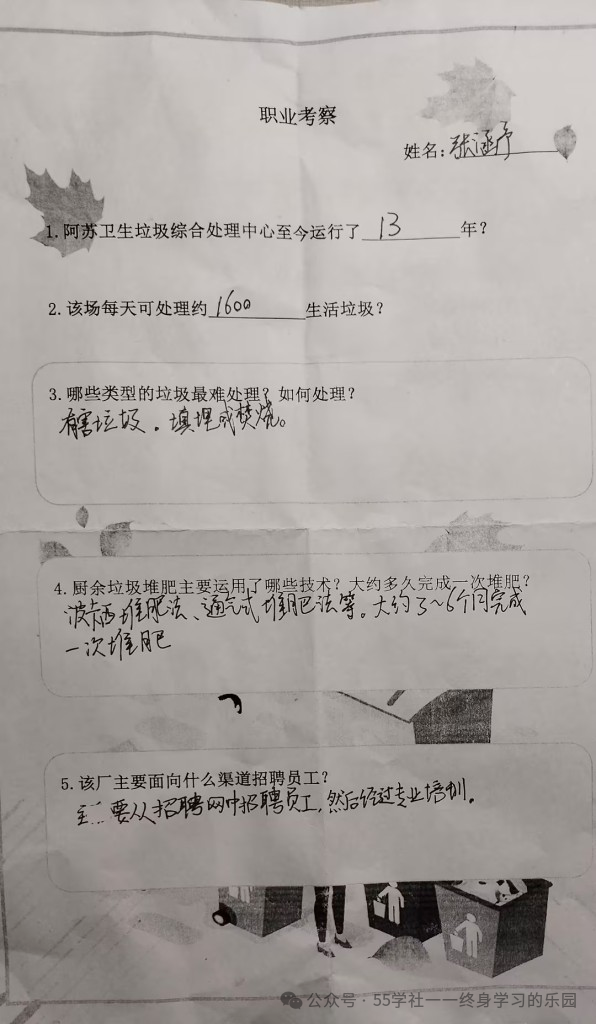 职业考察
姓名:张涵予
1.阿苏卫生垃圾综合处理中心至今运行了 13 年?
2.该场每天可处理约 1600 生活垃圾?
3.哪些类型的垃圾最难处理?如何处理?
有害垃圾。填埋或焚烧。
4.厨余垃圾堆肥主要运用了哪些技术?大约多久完成一次堆肥?
波卡西堆肥法、通气式堆肥法等。大约3~6个月完成
一次堆肥
5.该厂主要面向什么渠道招聘员工?
要从招聘网中招聘员工,然后经过专业培训。
公众号·55学社——终身学习的乐园